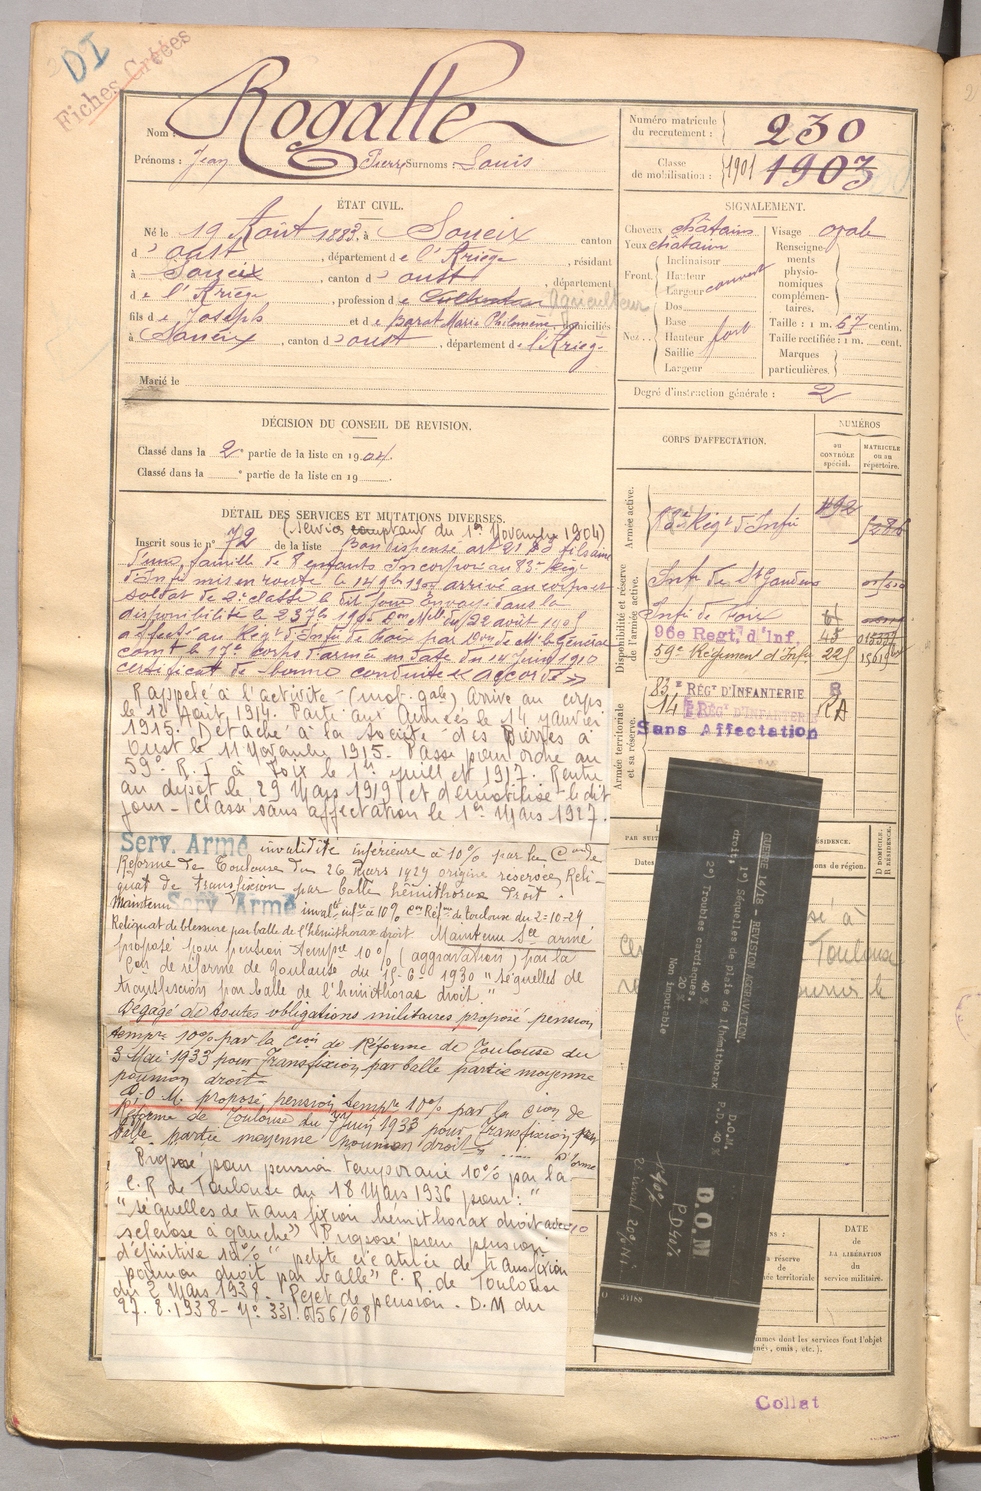 DI
Fiches Créées
Nom : Rogalle
Prénoms : Jean Pierre Surnoms : Louis
Numéro matricule du recrutement : 230
Classe de mobilisation : 1901 1903
ÉTAT CIVIL.
Né le 19 Août 1883, à Soueix canton
d'oust, département de l'Ariège, résidant
à Soueix, canton d'oust, département
de l'Ariège, profession de Cultivateur Agriculteur
fils de Joseph et de Barat Marie Philomène domiciliés
à Soueix, canton d'oust, département de l'Ariège
Marié le
SIGNALEMENT.
Cheveux châtains
Yeux châtain
Front. Inclinaison
Hauteur
Largeur couvert
Nez. Dos
Base
Hauteur fort
Saillie
Largeur
Visage ovale
Renseignements physionomiques complémentaires.
Taille : 1 m. 67 centim.
Taille rectifiée : 1 m. cent.
Marques particulières.
Degré d'instruction générale : 2
DÉCISION DU CONSEIL DE REVISION.
Classé dans la 2e partie de la liste en 1904.
Classé dans la e partie de la liste en 19
CORPS D'AFFECTATION.
NUMÉROS
au contrôle spécial.
MATRICULE ou au répertoire.
Armée active.
83e Régt d'Infie
Disponibilité et réserve de l'armée active.
Infie de St Gaudens
Infie de Foix
96e Regt, d'Inf. 45
59e Régiment d'Infie 225
Armée territoriale et sa réserve.
83e RÉGt D'INFANTERIE
14 RÉGt D'INFANTERIE
Sans Affectation
DÉTAIL DES SERVICES ET MUTATIONS DIVERSES.
(Service comptant du 1er Novembre 1904)
Inscrit sous le n° 72 de la liste Bon dispensé art 21 fils aîné
d'une famille de 8 enfants Incorporé au 83e Régt
d'Infie mis en route le 14 9bre 1904 arrivé au corps et
soldat de 2e classe le dit jour Envoyé dans la
disponibilité le 23 7bre 1905 du 22 août 1905
affecté au Régt d'Infie de Foix par Don de Mr le Général
comt le 17e corps d'armée en date du 14 Juin 1910
certificat de bonne conduite « accordé »
Rappelé à l'activité (mob. gale) Arrivé au corps
le 12 Août 1914. Parti aux Armées le 14 janvier
1915. Détaché à la Société des Pierres à
Oust le 11 Novembre 1915. Passé pour ordre au
59e R. I à Foix le 1er juillet 1917. Rentré
au dépôt le 29 Mars 1919 et démobilisé le dit
jour - Classé sans affectation le 1er Mars 1927.
Serv. Armé invalidité inférieure à 10% par la Con de
Réforme de Toulouse du 26 mars 1929 origine réservée, Reli-
quat de transfixion par balle hémithorax droit.
Maintenu Serv Armé inval. inf. à 10% Con Réf. de toulouse du 2-10-29
Reliquat de blessure par balle de l'hémithorax droit Maintenu Sce armé
proposé pour pension tempre 10% (aggravation) par la
Con de réforme de Toulouse du 1930 "séquelles de
transfixion par balle de l'hémithorax droit."
Dégagé de toutes obligations militaires proposé pension
tempre 10% par la Cion de Réforme de Toulouse du
3 Mai 1933 pour transfixion par balle partie moyenne
poumon droit
D.O.M. proposé pension tempre 10% par la Cion de
Réforme de Toulouse du 7 juin 1933 pour transfixion par
balle partie moyenne poumon droit
Proposé pour pension temporaire 10% par la
C.R de Toulouse du 18 Mars 1936 pour : "
"séquelles de transfixion hémithorax droit avec
sclérose à gauche" Proposé pour pension
définitive 10% "petite cicatrice de transfixion
poumon droit par balle" C. R. de Toulouse
du 2 Mars 1938. Rejet de pension. D.M du
27.8.1938 - N° 331.656/681
GUERRE 14/18 - REVISION AGGRAVATION.
1°) Séquelles de plaie de l'hémithorax droit. D.O.M. P.D. 40 %
2°) Troubles cardiaques.
40 %
20 %
Non imputable
D.O.M
PD 40%
O 31188
PAR SUITE
Dates
RÉSIDENCE.
D DOMICILE. R RÉSIDENCE.
Toulouse
DATE de LA LIBÉRATION du service militaire.
Collat